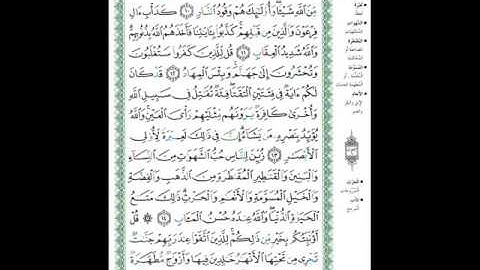 مِنَ ٱللَّهِ شَيْـًٔا وَأُو۟لَٰٓئِكَ هُمْ وَقُودُ ٱلنَّارِ ١٠ كَدَأْبِ ءَالِ
فِرْعَوْنَ وَٱلَّذِينَ مِن قَبْلِهِمْ كَذَّبُوا۟ بِـَٔايَٰتِنَا فَأَخَذَهُمُ ٱللَّهُ بِذُنُوبِهِمْ
وَٱللَّهُ شَدِيدُ ٱلْعِقَابِ ١١ قُل لِّلَّذِينَ كَفَرُوا۟ سَتُغْلَبُونَ
وَتُحْشَرُونَ إِلَىٰ جَهَنَّمَ وَبِئْسَ ٱلْمِهَادُ ١٢ قَدْ كَانَ
لَكُمْ ءَايَةٌ فِى فِئَتَيْنِ ٱلْتَقَتَا فِئَةٌ تُقَٰتِلُ فِى سَبِيلِ ٱللَّهِ
وَأُخْرَىٰ كَافِرَةٌ يَرَوْنَهُم مِّثْلَيْهِمْ رَأْىَ ٱلْعَيْنِ وَٱللَّهُ
يُؤَيِّدُ بِنَصْرِهِۦ مَن يَشَآءُ إِنَّ فِى ذَٰلِكَ لَعِبْرَةً لِّأُو۟لِى
ٱلْأَبْصَٰرِ ١٣ زُيِّنَ لِلنَّاسِ حُبُّ ٱلشَّهَوَٰتِ مِنَ ٱلنِّسَآءِ
وَٱلْبَنِينَ وَٱلْقَنَٰطِيرِ ٱلْمُقَنطَرَةِ مِنَ ٱلذَّهَبِ وَٱلْفِضَّةِ
وَٱلْخَيْلِ ٱلْمُسَوَّمَةِ وَٱلْأَنْعَٰمِ وَٱلْحَرْثِ ذَٰلِكَ مَتَٰعُ
ٱلْحَيَوٰةِ ٱلدُّنْيَا وَٱللَّهُ عِندَهُۥ حُسْنُ ٱلْمَـَٔابِ ١٤ ۞ قُلْ
أَؤُنَبِّئُكُم بِخَيْرٍ مِّن ذَٰلِكُمْ لِلَّذِينَ ٱتَّقَوْا۟ عِندَ رَبِّهِمْ جَنَّٰتٌ
تَجْرِى مِن تَحْتِهَا ٱلْأَنْهَٰرُ خَٰلِدِينَ فِيهَا وَأَزْوَٰجٌ مُّطَهَّرَةٌ